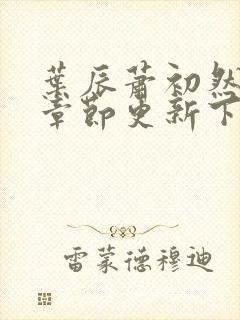 叶辰萧初然
章節更新下
雷蒙德穆迪